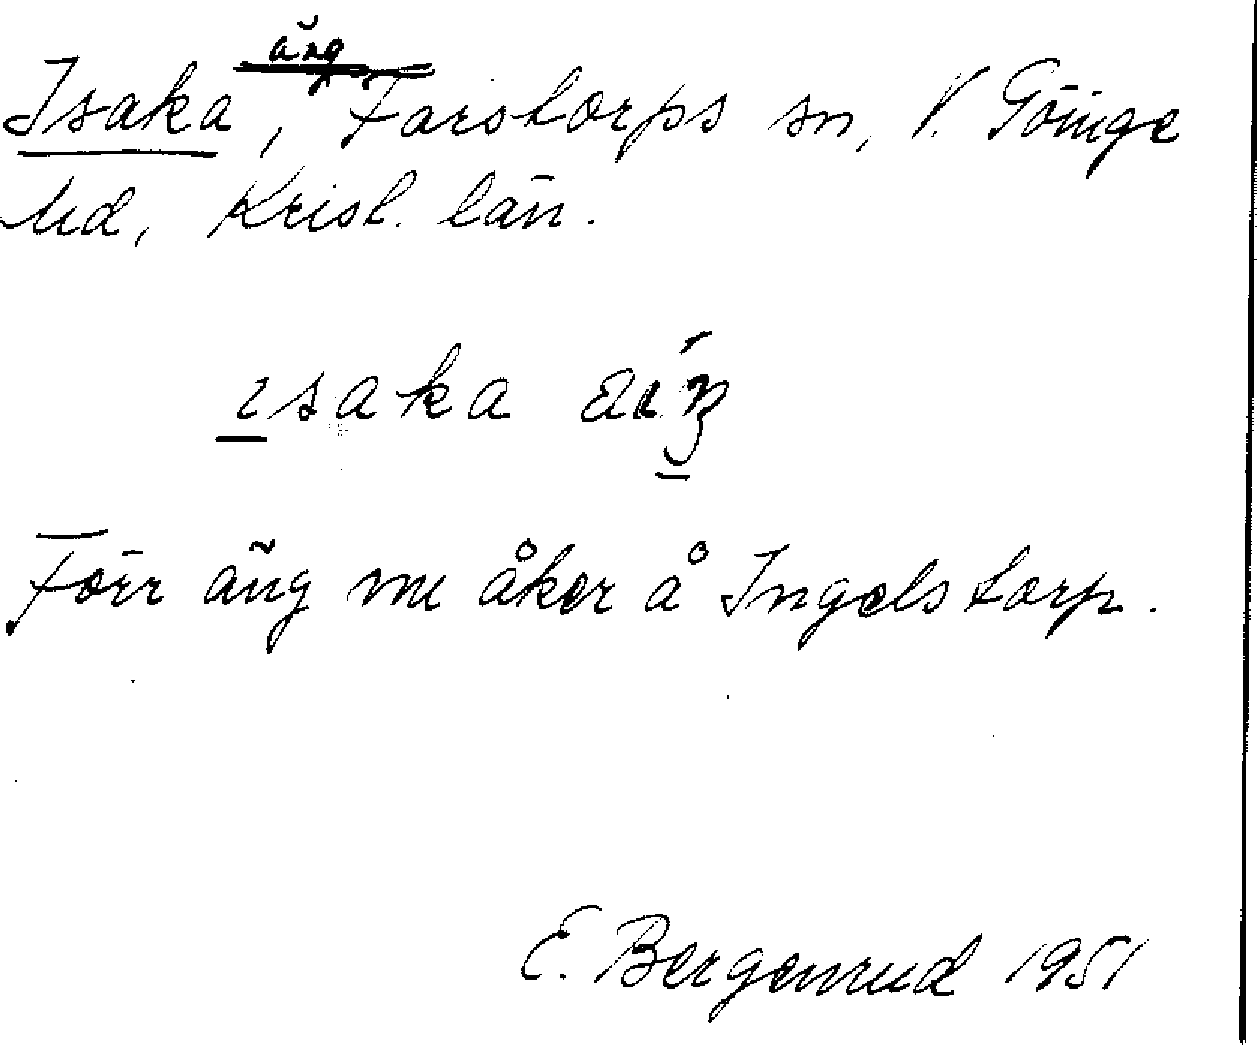 Isaka äng, Farstorps sn, V. Göinge
hd, Krist. län.
ısaka
Förr äng nu åker å Ingelstorp.
E. Bergenrud 1951